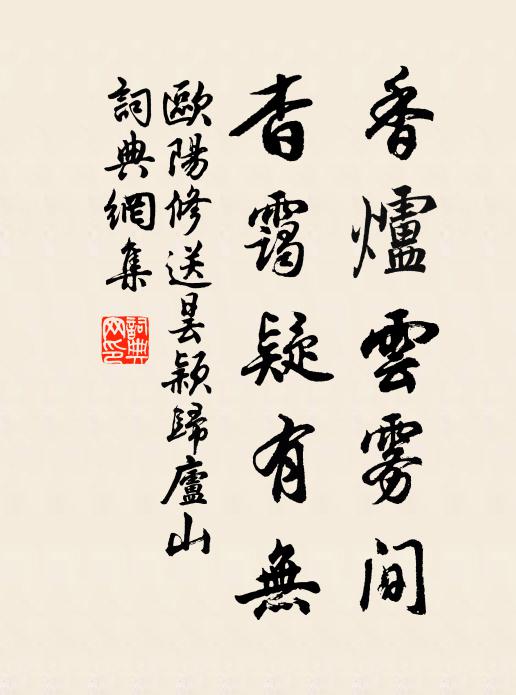 香爐雲霧間
杳靄疑有無
歐陽修送昙穎歸廬山
詞典網集
詞典网印